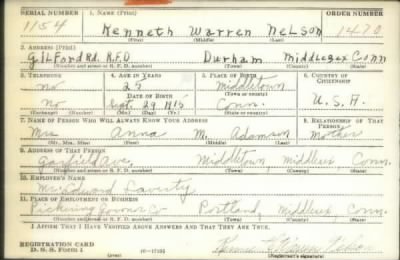 SERIAL NUMBER 1. NAME (Print) ORDER NUMBER
1154 Kenneth Warren Nelson 1470
(First) (Middle) (Last)
2. ADDRESS (Print)
Gilford Rd. R.F.D Durham Middlesex Conn
(Number and street or R. F. D. number) (Town) (County) (State)
3. TELEPHONE 4. AGE IN YEARS 5. PLACE OF BIRTH 6. COUNTRY OF CITIZENSHIP
no 25 Middletown
DATE OF BIRTH (Town or county)
no Sept. 29 1915 Conn. U.S.A.
(Exchange) (Number) (Mo.) (Day) (Yr.) (State or country)
7. NAME OF PERSON WHO WILL ALWAYS KNOW YOUR ADDRESS 8. RELATIONSHIP OF THAT PERSON
Mrs. Anna M. Adamson Mother
(Mr., Mrs., Miss) (First) (Middle) (Last)
9. ADDRESS OF THAT PERSON
Garfield Ave, Middletown, Middlesex Conn.
(Number and street or R. F. D. number) (Town) (County) (State)
10. EMPLOYER'S NAME
Mr. Edward Laverty
11. PLACE OF EMPLOYMENT OR BUSINESS
Pickering Co Portland, Middlesex, Conn.
(Number and street or R. F. D. number) (Town) (County) (State)
I AFFIRM THAT I HAVE VERIFIED ABOVE ANSWERS AND THAT THEY ARE TRUE.
REGISTRATION CARD
D. S. S. Form 1 (over) Kenneth Warren Nelson
(Registrant's signature)